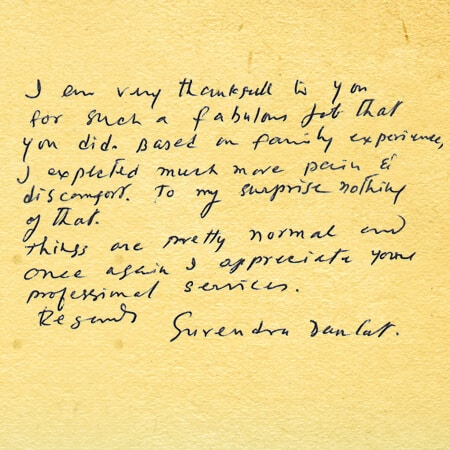 I am very thankfull to you
for such a fabulous job that
you did. Based on family experience,
I expected much more pain &
discomfort. To my surprise nothing
of that.
Things are pretty normal and
once again I appreciate your
professional services.
Regards
Surendra